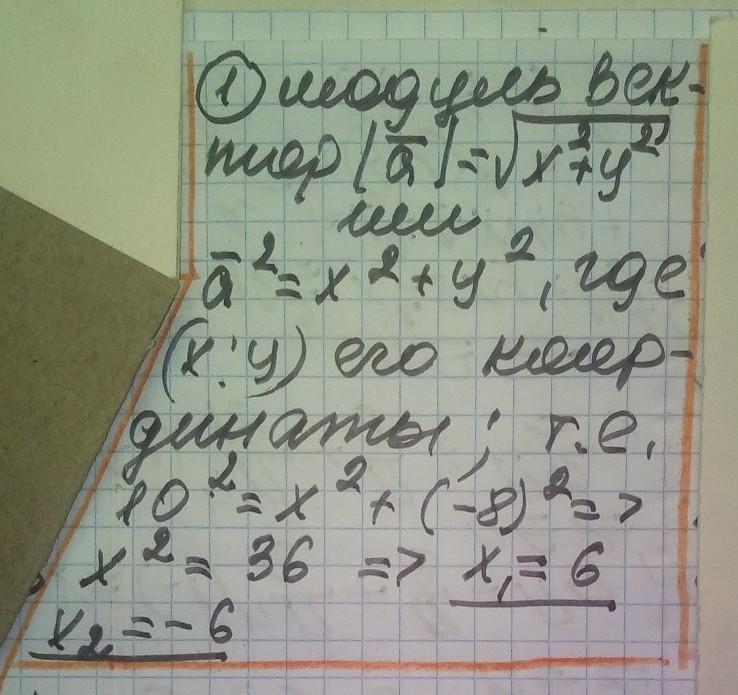 ① модуль век-
тор |a̅|=√x²+y²
или
a̅²=x²+y², где
(x;y) его коор-
динаты; т.е.
10²=x²+(-8)²=>
x²=36 => x₁=6
x₂=-6